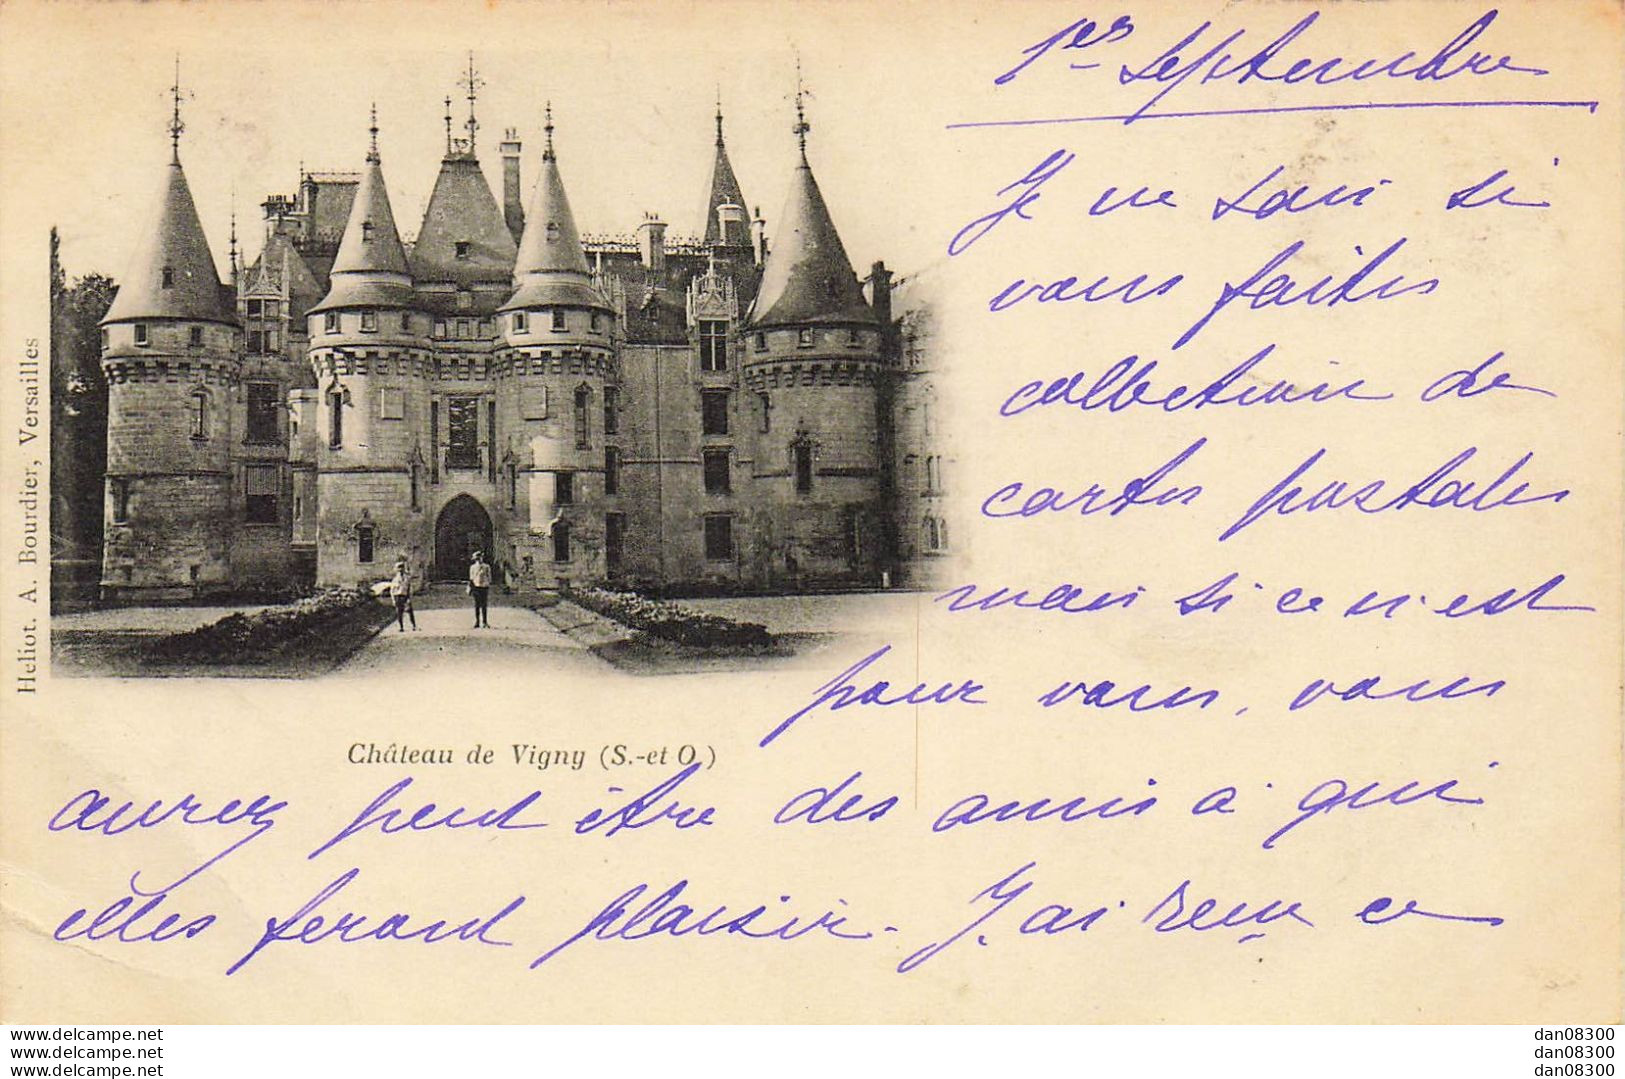 1er septembre
Je ne sais si
vous faites
collection de
cartes postales
mais si ce n'est
pour vous, vous
aurez peut être des amis à qui
elles feront plaisir. J'ai reçu ce
Héliot. A. Bourdier, Versailles
Château de Vigny (S.-et O.)
www.delcampe.net
www.delcampe.net
www.delcampe.net
dan08300
dan08300
dan08300